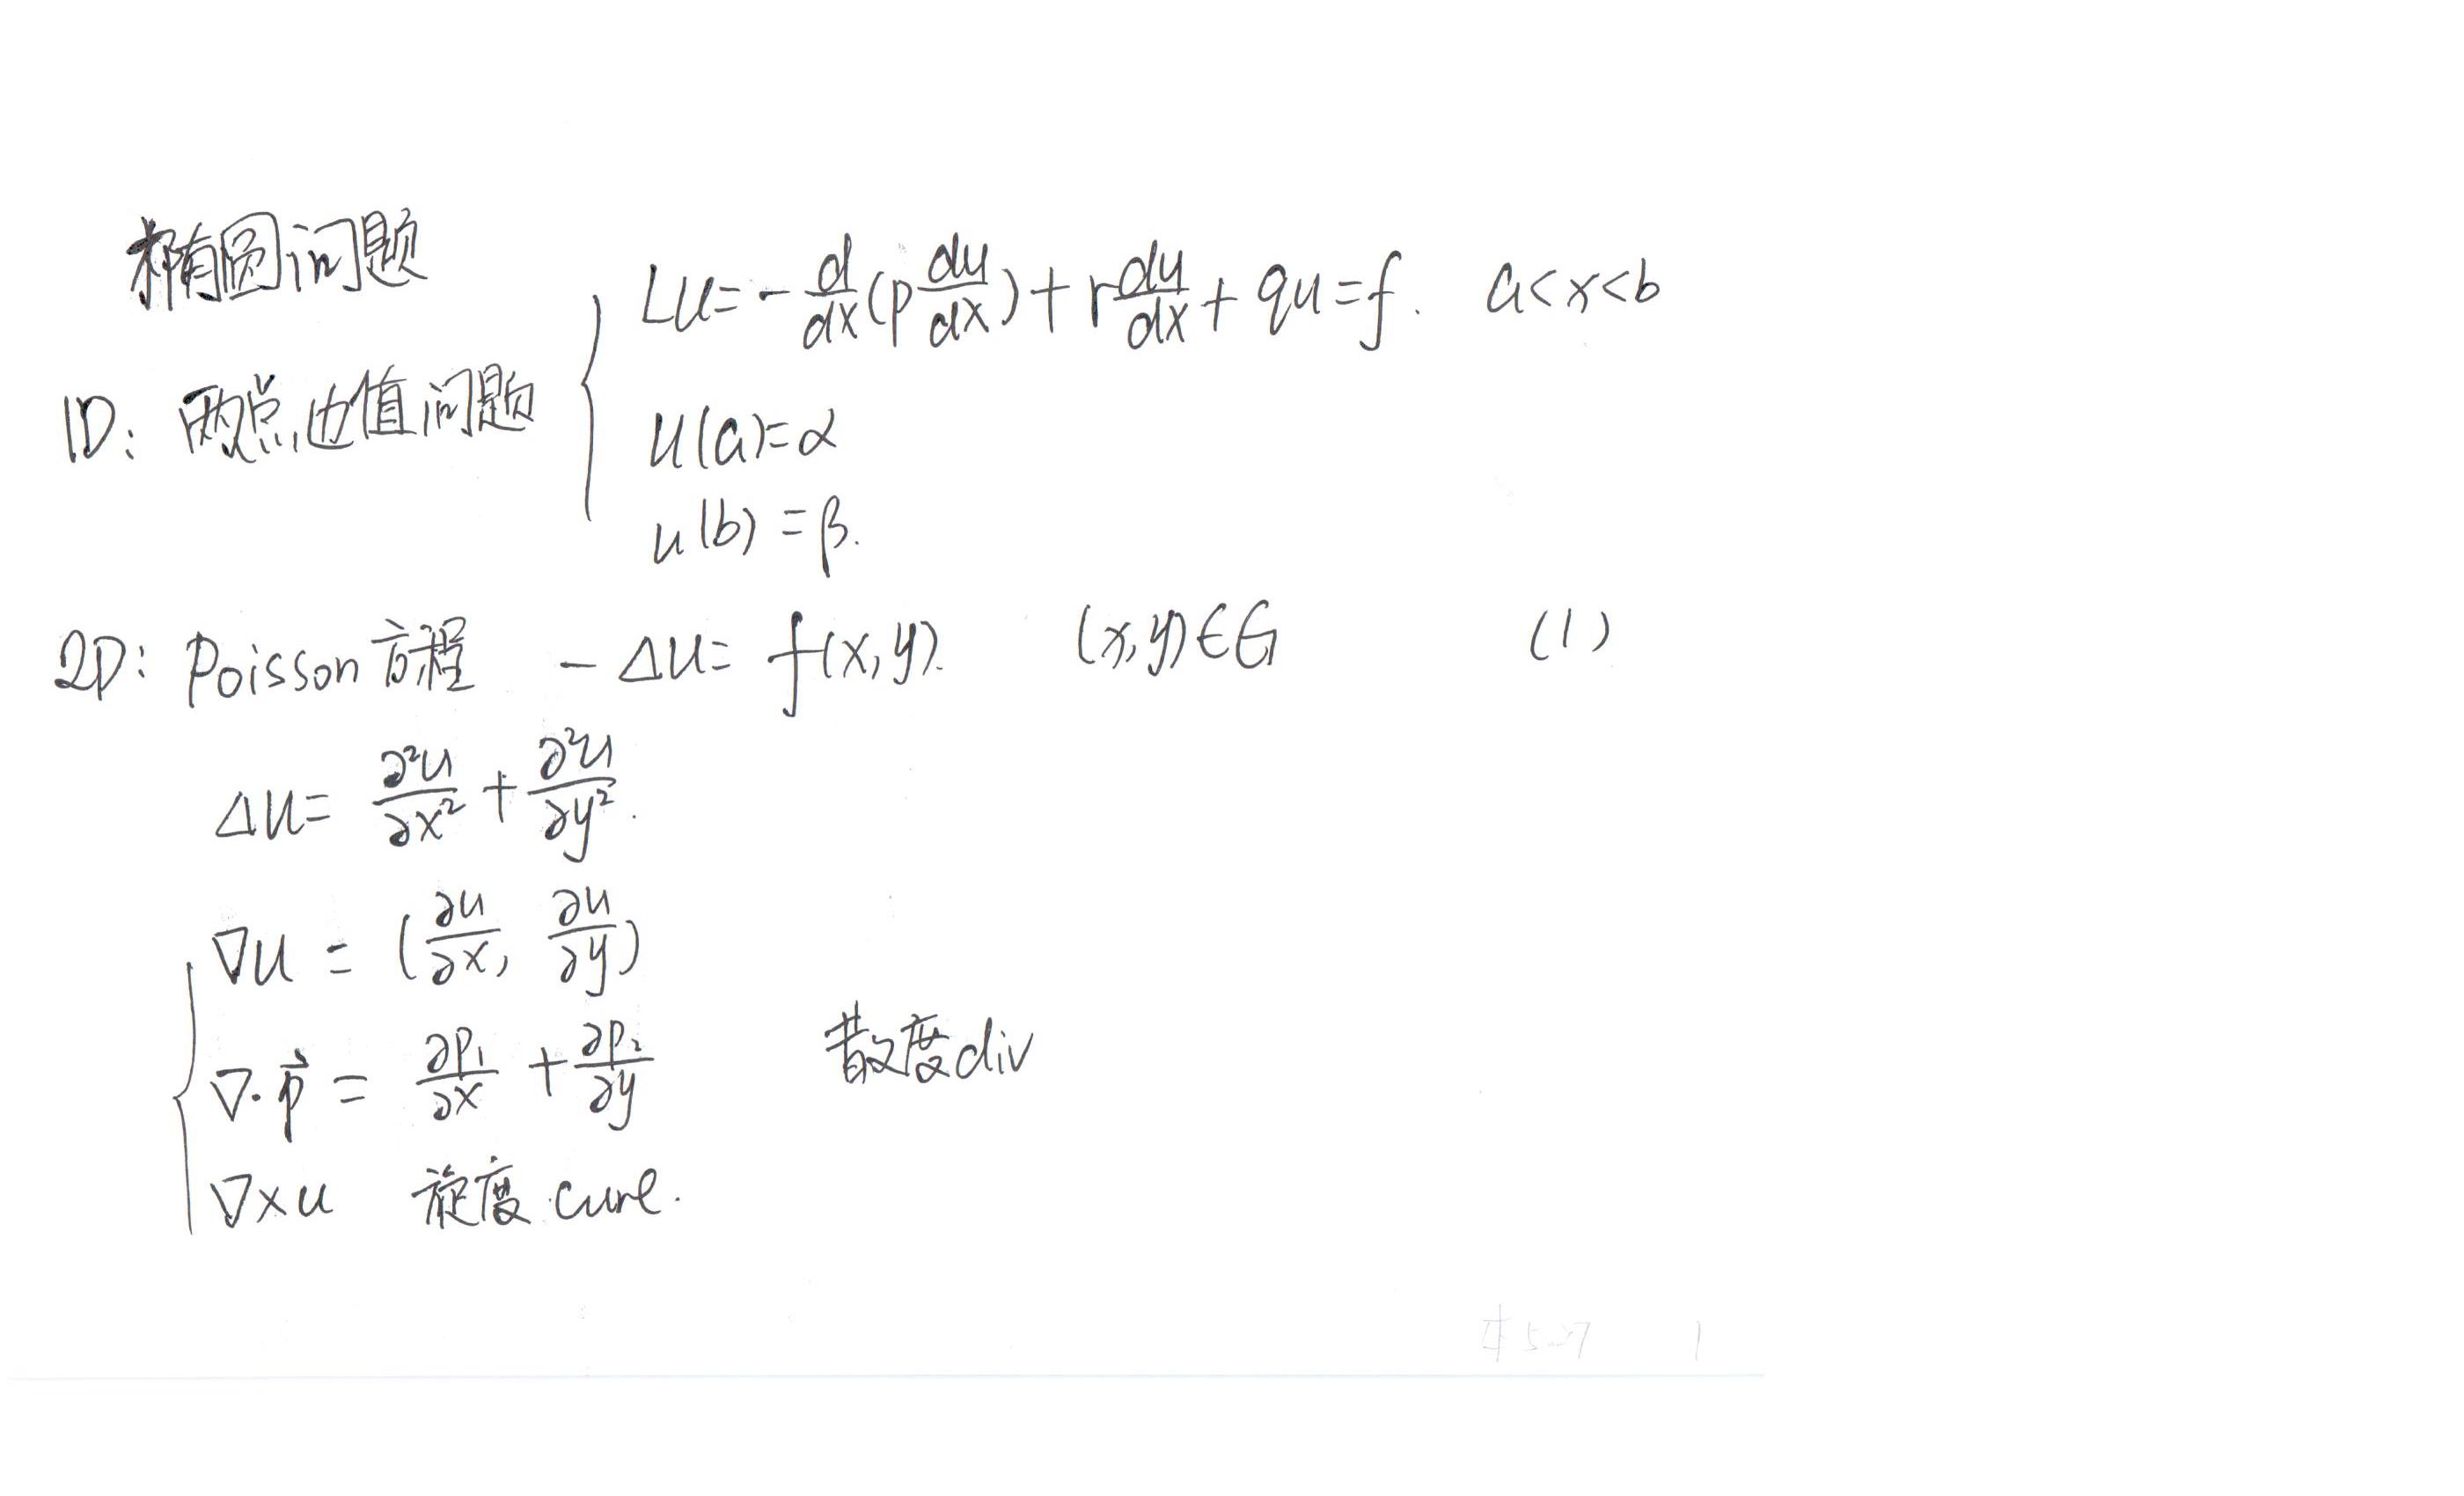 椭圆问题
Lu = -d/dx(p du/dx) + r du/dx + qu = f. a<x<b
1D: 两点边值问题
u(a)=α
u(b)=β.
2D: Poisson方程 -Δu= f(x,y). (x,y)∈G (1)
Δu= ∂²u/∂x² + ∂²u/∂y².
∇u = (∂u/∂x, ∂u/∂y)
∇·p⃗ = ∂p₁/∂x + ∂p₂/∂y 散度div
∇×u 旋度 curl.